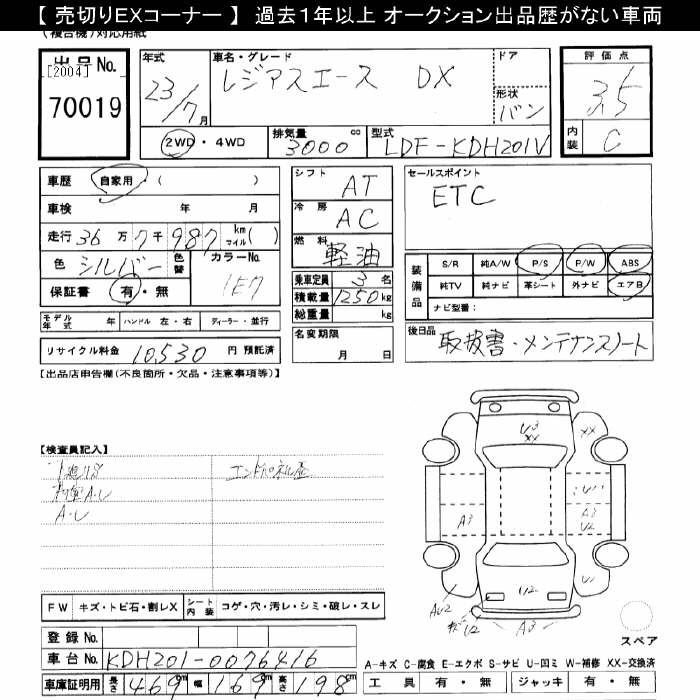 【 売切りEXコーナー 】 過去１年以上 オークション出品歴がない車両
(複合機)対応用紙
出品No.
[2004]
70019
年式
23/7月
車名・グレード
レジアスエース DX
ドア
形状
バン
評価点
3.5
内装
C
2WD・4WD
排気量
3000 cc
型式
LDF-KDH201V
車歴 自家用・( )
車検 年 月
走行 36万7千987 km(マイル)
色 シルバー 色替
カラーNo.
1E7
保証書 有・無
モデル年式 年 ハンドル 左・右 ディーラー・並行
リサイクル料金 10,530 円 預託済
シフト
AT
冷房
AC
燃料
軽油
乗車定員 3 名
積載量 1250 kg
総重量 kg
名変期限
月 日
セールスポイント
ETC
装備品
S/R 純A/W P/S P/W ABS
純TV 純ナビ 革シート 外ナビ エアB
ナビ型番:
後日品
取扱書・メンテナンスノート
【出品店申告欄(不良箇所・欠品・注意事項等)】
【検査員記入】
A・U
A・U
FW キズ・トビ石・割レX シート内装 コゲ・穴・汚レ・シミ・破レ・スレ
登録No.
車台No. KDH201-0076416
車庫証明用 長さ 469cm 幅 169cm 高さ 198cm
U3
XX
XX
A3
A3
U2
U2
AU2
U2
A3
スペア
A-キズ C-腐食 E-エクボ S-サビ U-凹ミ W-補修 XX-交換済
工具 有・無 ジャッキ 有・無